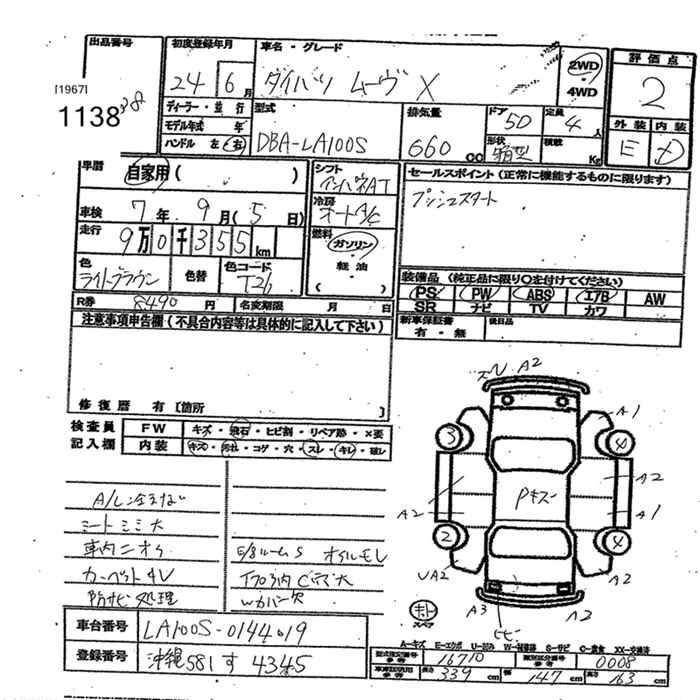 出品番号
[1967]
1138
初度登録年月
24 6月
車名・グレード
ダイハツ ムーヴ X
2WD
4WD
評価点
2
外装 内装
E D
ディーラー・並行
モデル年式 年
ハンドル 左 右
型式
DBA-LA100S
排気量
660 cc
ドア
5D
形状
箱型
定員
4人
積載
Kg
車歴
自家用( )
車検 7年 9月(5日)
走行
9万0千355km
色
ライトブラウン
色替
色コード
T26
シフト
インパネAT
冷房
オートA/C
燃料
ガソリン
軽油
( )
セールスポイント(正常に機能するものに限ります)
プッシュスタート
装備品(純正品に限り○を付けてください)
PS PW ABS エアB AW
SR ナビ TV カワ
新車保証書
有・無
後日品
R券 8490円
名変期限 月 日
注意事項申告欄(不具合内容等は具体的に記入して下さい)
修復歴 有[箇所 ]
検査員
記入欄
FW キズ・飛石・ヒビ割・リペア跡・×要
内装 キズ・汚れ・コゲ・穴・スレ・キレ・破レ
A/C冷えない
シートシミ大
車内ニオイ
カーペットAV
防サビ処理
E/Gルーム S オイルモレ
下回り内
Wカバー欠
A2
A1
3
4
A2
Pキズ
A2
A1
2
4
UA2
A2
A3
A2
ヒビ
キト
スペア
A-キズ E-エクボ U-凹み W-補修跡 S-サビ C-腐食 XX-交換済
車台番号
LA100S-0144019
登録番号
沖縄581す4345
型式指定番号
参考
16710
類別区分番号
参考
0008
車庫証明用
参考
長さ 339cm
幅 147cm
高さ 163cm